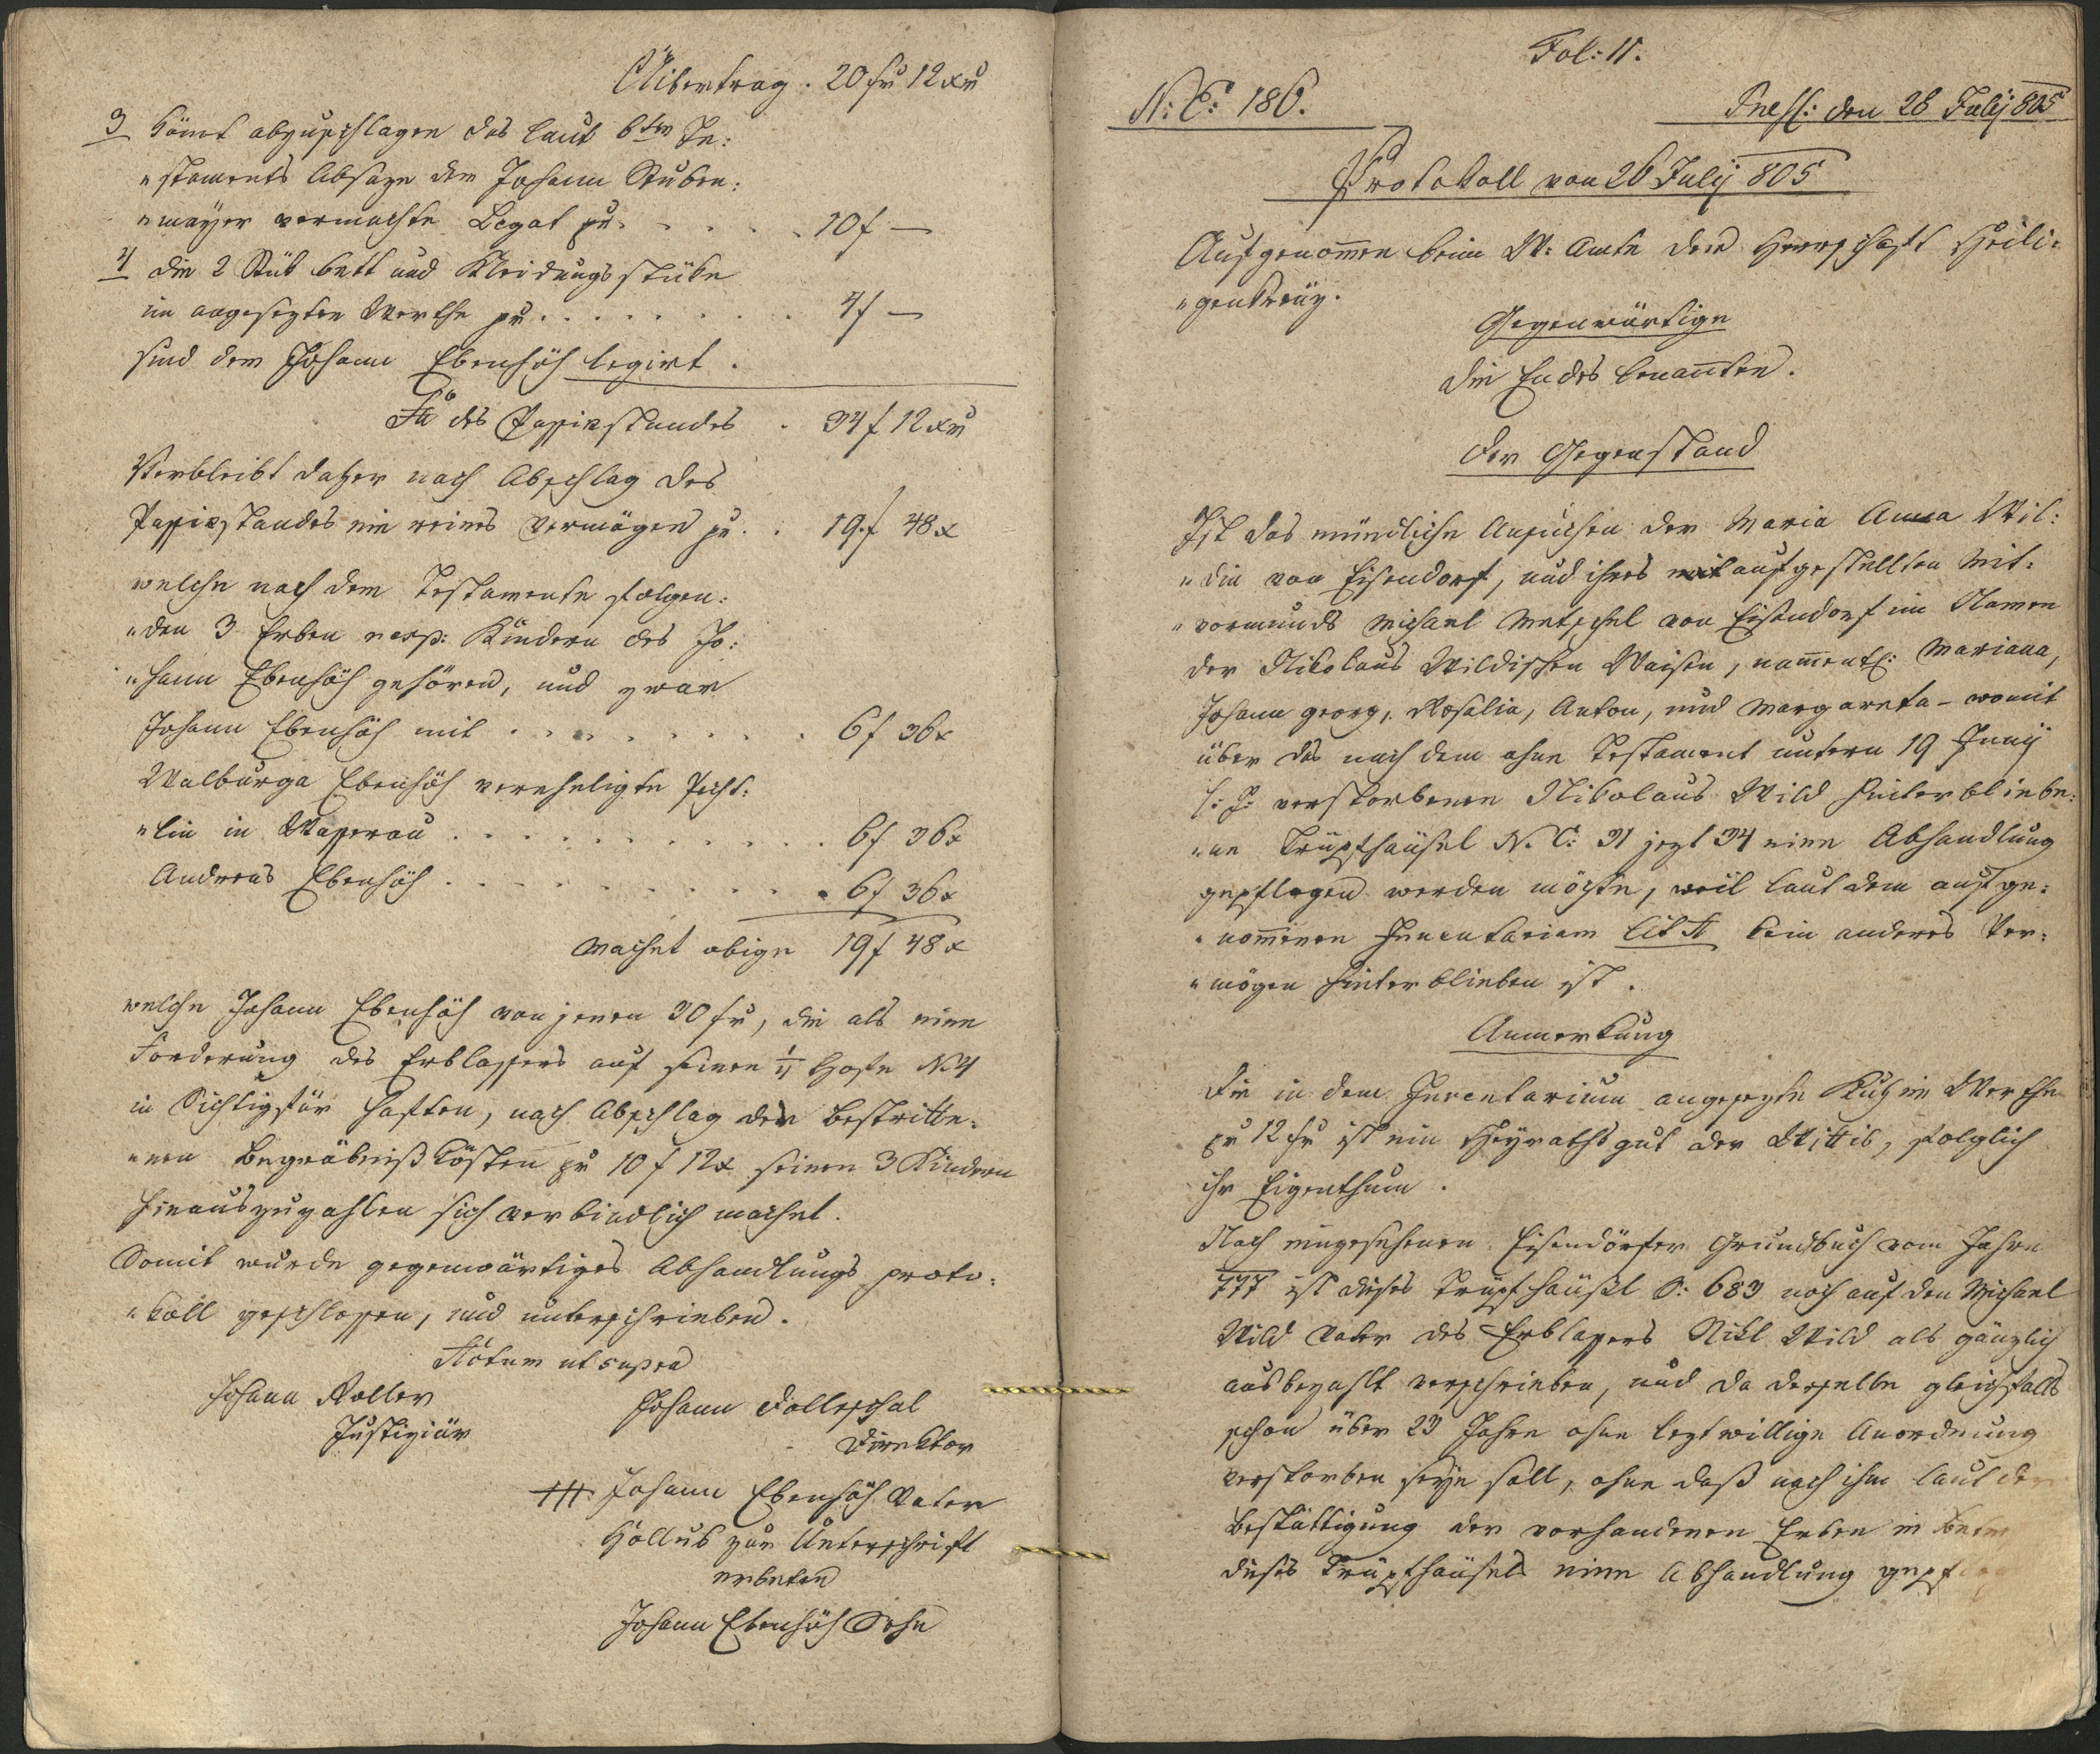 Übertrag . 20 fr 12 xr
3 kömt abzuschlagen das laut 6ten Te:
"staments Absaze dem Johann Stuben:
"mayer vermachte Legat zu . . . . . 10 f —
4 die 2 Stük bett und Kleidungsstüke
im angesezten Werthe zu . . . . . . . . 4 f —
sind dem Johann Ebenhöh legirt .
Sa des Passivstandes . 34 f 12 xr
Verbleibt daher nach Abschlag des
Passivstandes ein reines Vermögen zu . . 19 f 48 x
welche nach dem Testamente folgen:
"den 3 Erben resp: Kindern des Jo:
"hann Ebenhöh gehören, und zwar
Johann Ebenhöh mit . . . . . . . . 6 f 36 x
Walburga Ebenhöh vereheligte
"lin in . . . . . . . . . . 6 f 36 x
Andreas Ebenhöh . . . . . . . . . . 6 f 36 x
Machet obige 19 f 48 x
welche Johann Ebenhöh von jenen 30 fr, die als eine
Forderung des Erblassers auf seinen Hofe N 4
in haften, nach Abschlag der bestritte:
"nen Begräbniß kösten zu 10 f 12 x seinen 3 Kindern
hinauszuzahlen sich verbindlich machet.
Somit wurde gegenwärtiges Abhandlungs proto:
"koll geschlossen, und unterschrieben .
Actum ut supra
Johann Johann Dolleschal
Justiziär Direktor
+++ Johann Ebenhöh Vater
zur Unterschrift
erbeten
Johann Ebenhöh Sohn
Fol: 11.
N: E: 186. Praes: den 28 July 805
Protokoll von 26 July 805
Aufgenomen beim W: Amte der Herrschaft Heili:
"genkreüz.
Gegenwärtige
die Endes benannten .
Der Gegenstand
Ist das mündliche Ansuchen der Maria Anna Wil:
"din von Eisendorf, und ihres mit aufgestellten Mit:
"vormunds Michael von Eisendorf im Namen
der Nikolaus Wildischen Waisen, namentl: Mariana,
Johann Georg, Rosalia, Anton, und Margareta - womit
über das nach dem ohne Testament untern 19 Juny
l: J: verstorbenen Nikolaus Wild hinterbliebe:
"ne Trüpfhäusel N. C: 31 jezt 34 eine Abhandlung
gepflogen werden möchte, weil laut dem aufge:
"nommenen Inventarium Lit A kein anderes Ver:
"mögen hinterblieben ist .
Anmerkung
Die in dem Inventarium angesezte Kuh im Werthe
pr 12 fr ist ein Heyrathsgut der Wittib, folglich
ihr Eigenthum .
Nach eingesehenen Eisendörfer Grundbuch vom Jahre
777 ist dieses Trüpfhäusl S: 683 noch auf den Michael
Wild Vater des Erblassers Nikl Wild als gänzlich
ausbezahlt verschrieben, und da derselbe gleichfalls
schon über 23 Jahre ohne leztwillige Anordnung
verstorben seyn soll, ohne daß nach ihm laut der
Bestättigung der vorhandenen Erben in
dieses Trüpfhäusels eine Abhandlung